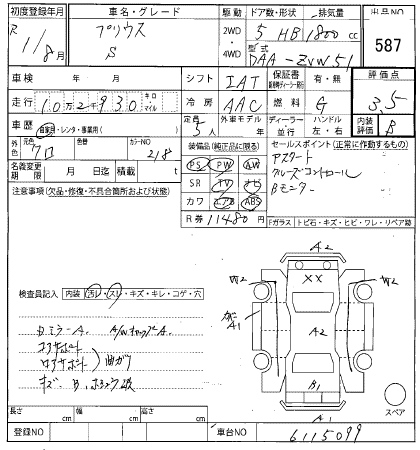 初度登録年月 車名・グレード 駆動 ドア数・形状 排気量 出品NO
R 1/8月 プリウス S 2WD 4WD 5 HB 1800cc 587
型式 DAA-ZVW51
車検 年 月 シフト IAT 保証書 有・無 評価点
走行 10万2930 キロ マイル 冷房 AAC 燃料 G 3.5
車歴 自家用・レンタ・事業用( ) 定員 5人 外車モデル 年 ディーラー 並行 ハンドル 左・右 内装評価 B
外色 元色 クロ 色替 カラーNO 218
装備品(純正品に限る) セールスポイント(正常に作動するもの)
PS PW AW アスラート
SR TV ナビ クルーズコントロール
カワ エアB ABS Bモニター
名義変更期限 月 日迄 積載 t
R券 11480円
注意事項(欠品・修復・不具合箇所および状態)
Fガラス トビ石・キズ・ヒビ・ワレ・リペア跡
検査員記入 内装 汚レ・スレ・キズ・キレ・コゲ・穴
ミラーA. A/WキャップA.
コアサポート
ロアサポート 曲ガリ
キズ
A2
XX
W2
W2
A1
A2
B1
A1
スペア
長さ cm 幅 cm 高さ cm
登録NO 車台NO 6115099